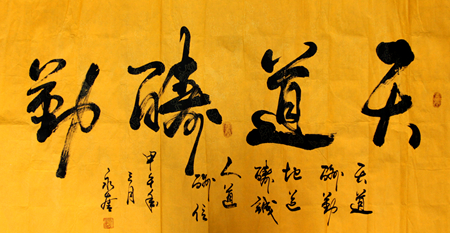 天道酬勤
天道
酬勤
地道
酬誠
人道
酬信
甲午年
三月